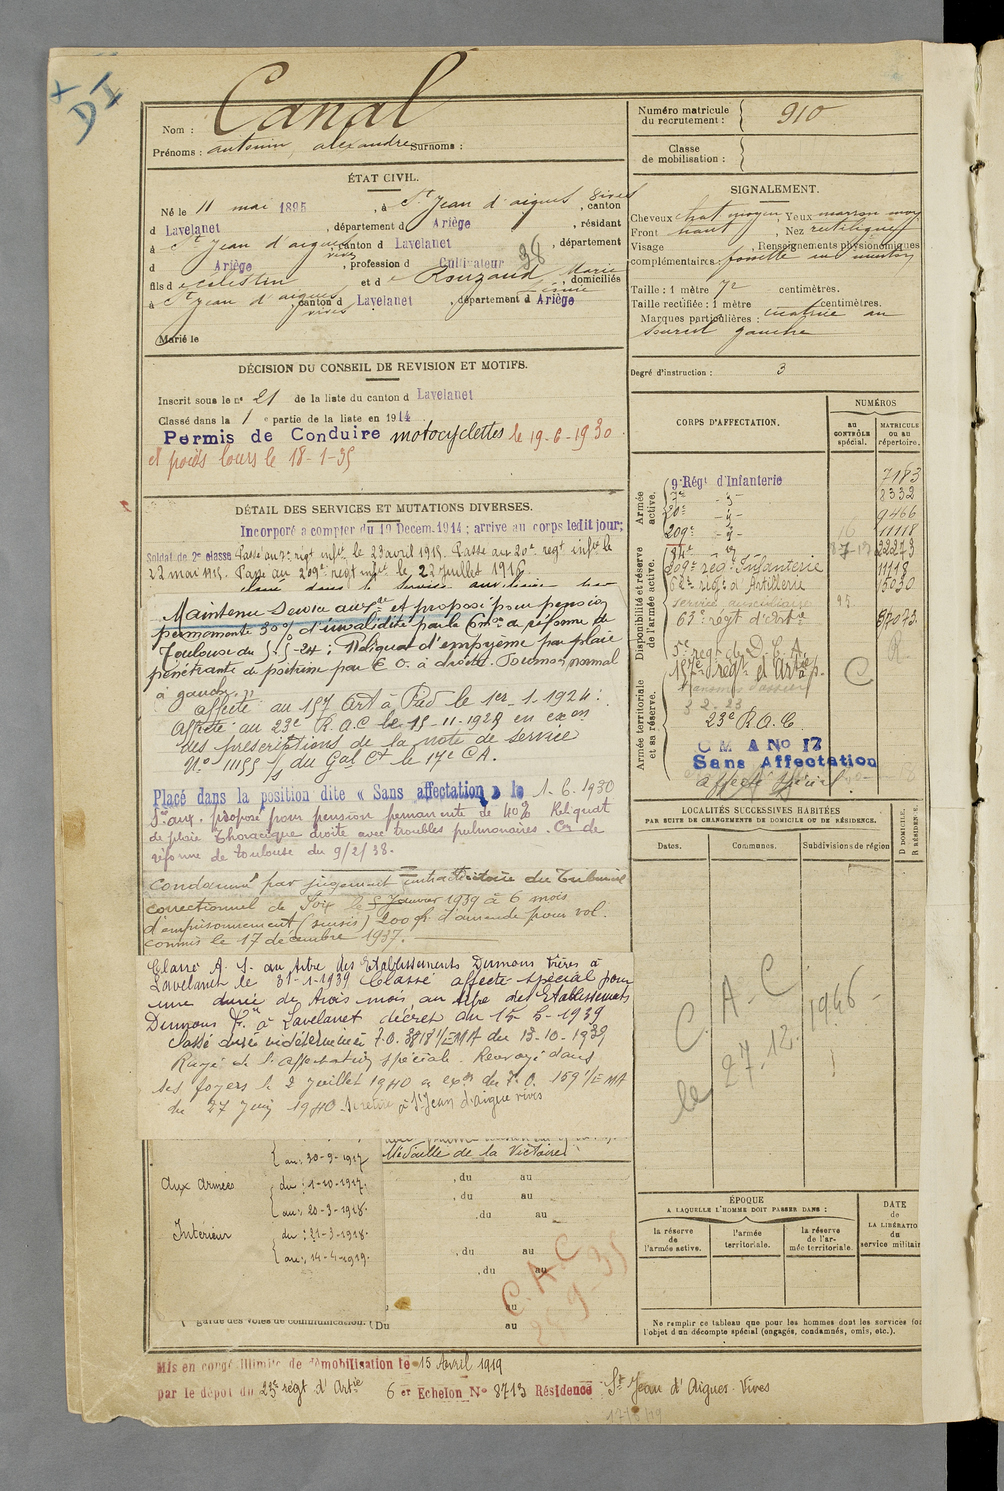 + DI
Nom : Canal
Prénoms : antonin, alexandre Surnoms :
ÉTAT CIVIL.
Né le 11 mai 1895, à St Jean d'aigues vives, canton
d Lavelanet, département d Ariège, résidant
à St Jean d'aigues vives, canton d Lavelanet, département
d Ariège, profession d Cultivateur 38
fils d e Celestin et d e Rouzaud Marie, domiciliés
à St Jean d'aigues vives, canton d Lavelanet, département d Ariège
Marié le
DÉCISION DU CONSEIL DE REVISION ET MOTIFS.
Inscrit sous le n° 21 de la liste du canton d Lavelanet
Classé dans la 1 e partie de la liste en 1914
Permis de Conduire motocyclettes le 19-6-1930
et poids lours le 18-1-35
DÉTAIL DES SERVICES ET MUTATIONS DIVERSES.
Incorporé a compter du 19 Decem. 1914 ; arrive au corps ledit jour;
Soldat de 2e classe Passé au 7e régt infie le 23 avril 1915. Passé au 20e regt infie le
22 mai 1915. Passé au 209e regt infie le 22 juillet 1916
Maintenu Service auxre et proposé pour pension
permanente 30% d'invalidité par la Comon de réforme de
Toulouse du 5-5-24 ; Reliquat d'empyème par plaie
pénétrante de poitrine par E. O. à droite. Poumon normal
à gauche. "
affecté au 157 Art à Pied le 1er-1-1924 :
Affecté au 23e R.A.C le 15-11-1928 en exon
des prescriptions de la note de service
N° 11155 1/5 du Gal Ct le 17e C.A.
Placé dans la position dite « Sans affectation » le 1.6.1930
Sce aux. proposé pour pension permanente de 40% Reliquat
de plaie thoracique droite avec troubles pulmonaires. Con de
réforme de toulouse du 9/2/38.
Condamné par jugement contradictoire du Tribunal
Correctionnel de Foix le 5 Janvier 1939 à 6 mois
d'emprisonnement (sursis) 200 fr. d'amende pour vol.
commis le 17 décembre 1937.
Classé A. S. au titre des Etablissements Dumons Frères à
Lavelanet le 31-1-1939 Classé affecté spécial pour
une durée de trois mois au titre des Etablissements
Dumons F. à Lavelanet décret du 15-5-1939
Classé durée indéterminée F.O. 3818 1/EMA du 13-10-1939
Rayé de l'affectation spéciale. Renvoyé dans
ses foyers le 2 juillet 1940 en exon du F.O. 159 1/EMA
du 27 Juin 1940. Se retire à St Jean d'aigue vives
Médaille de la Victoire.
au : 30-9-1917
Aux Armées du : 1-10-1917.
au : 20-3-1918.
Intérieur du : 21-3-1918.
au : 14-4-1919.
, du au
, du au
, du au
, du au
, du au
au
garde des voies de communication. (Du au
C.A.C
28-9-35
Mis en congé illimité de démobilisation le 15 Avril 1919
par le dépot du 23e régt d'Artie 6 er Echelon N° 8713 Résidence St Jean d'Aigues-Vives
Numéro matricule
du recrutement : 910
Classe
de mobilisation :
SIGNALEMENT.
Cheveux chat moyen Yeux marron moy
Front haut, Nez rectiligne
Visage , Renseignements physionomiques
complémentaires : fossette au menton
Taille : 1 mètre 72 centimètres.
Taille rectifiée : 1 mètre centimètres.
Marques particulières : cicatrice au
sourcil gauche
Degré d'instruction : 3
CORPS D'AFFECTATION.
NUMÉROS
au
CONTRÔLE
spécial.
MATRICULE
ou au
répertoire.
Armée
active.
9e Régt d'Infanterie 7183
7e -"- 8332
20e -"- 9466
209e -"- 11118
Disponibilité et réserve
de l'armée active.
22273
209e reg. Infanterie 11118
régt d'Artillerie
service auxiliaire 95
régt d'Artie
5e regt de D.C.A. R
Armée territoriale
et sa réserve.
157e régt et Artie à p. C
23e R.A.C
C M A No 17
Sans Affectation
affecté spécial
LOCALITÉS SUCCESSIVES HABITÉES
PAR SUITE DE CHANGEMENTS DE DOMICILE OU DE RÉSIDENCE.
Dates. Communes. Subdivisions de région
D DOMICILE.
R RÉSIDENCE.
C. A-C
le 27.12.1946-
ÉPOQUE
A LAQUELLE L'HOMME DOIT PASSER DANS :
la réserve
de
l'armée active.
l'armée
territoriale.
la réserve
de l'ar-
mée territoriale.
DATE
de
LA LIBÉRATIO
du
service militair
Ne remplir ce tableau que pour les hommes dont les services fo
l'objet d'un décompte spécial (engagés, condamnés, omis, etc.).